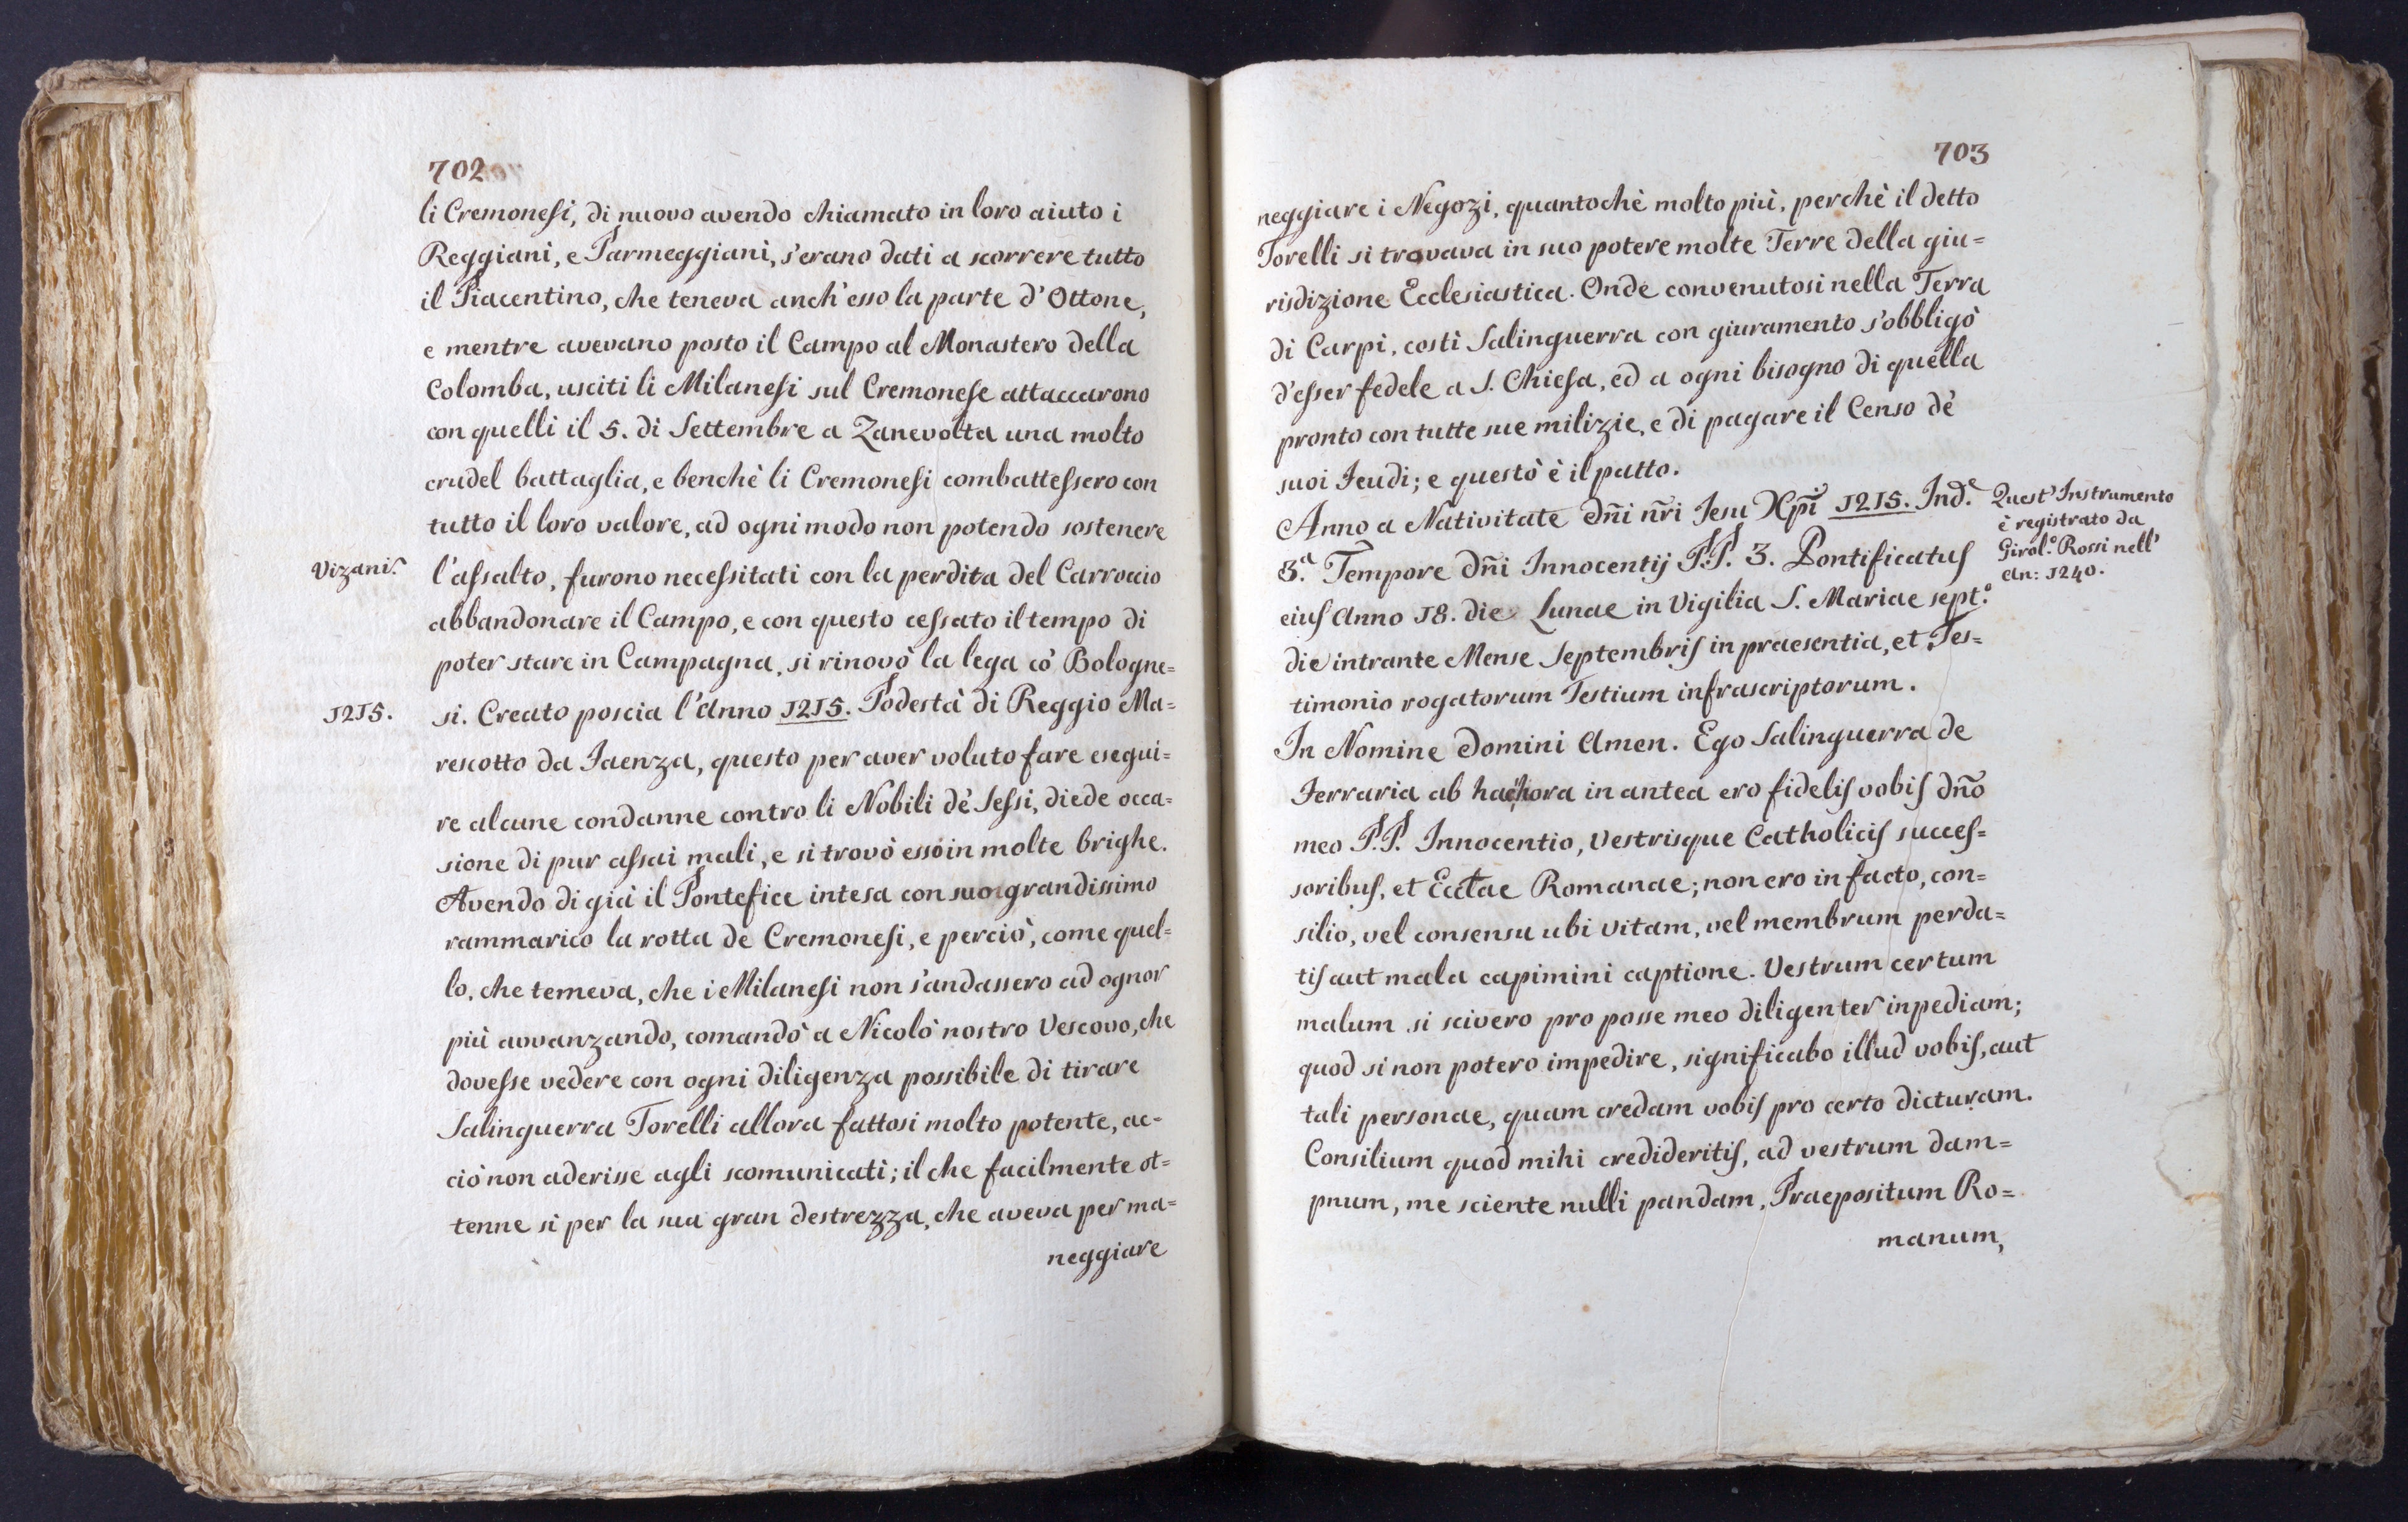 702
li Cremonesi, di nuovo avendo chiamato in loro aiuto i
Reggiani, e Parmeggiani, s'erano dati a scorrere tutto
il Piacentino, che teneva anch'esso la parte d'Ottone,
e mentre avevano posto il Campo al Monastero della
Colomba, usciti li Milanesi sul Cremonese attaccarono
con quelli il 5. di Settembre a Zanevolta una molto
crudel battaglia, e benchè li Cremonesi combattessero con
tutto il loro valore, ad ogni modo non potendo sostenere
Vizani.
l'assalto, furono necessitati con la perdita del Carroccio
abbandonare il Campo, e con questo cessato il tempo di
poter stare in Campagna, si rinovò la lega co' Bologne=
1215.
si. Creato poscia l'Anno 1215. Podestà di Reggio Ma=
rescotto da Faenza, questo per aver voluto fare esegui=
re alcune condanne contro li Nobili de' Sessi, diede occa=
sione di pur assai mali, e si trovò esso in molte brighe.
Avendo di già il Pontefice intesa con suo grandissimo
rammarico la rotta de Cremonesi, e perciò, come quel=
lo, che temeva, che i Milanesi non s'andassero ad ognor
più avvanzando, comandò a Nicolò nostro Vescovo, che
dovesse vedere con ogni diligenza possibile di tirare
Salinguerra Torelli allora fattosi molto potente, ac=
ciò non aderisse agli scomunicati; il che facilmente ot=
tenne sì per la sua gran destrezza, che aveva per ma=
neggiare
703
neggiare i Negozi, quantochè molto più, perchè il detto
Torelli si trovava in suo potere molte Terre della giu=
risdizione Ecclesiastica. Onde convenutosi nella Terra
di Carpi, costì Salinguerra con giuramento s'obbligò
d'esser fedele a S. Chiesa, ed a ogni bisogno di quella
pronto con tutte sue milizie, e di pagare il Censo de'
suoi Feudi; e questo è il patto.
Anno a Nativitate Dñi nr̃i Jesu Xp̃i 1215. Ind.e
Quest'Instrumento
è registrato da
Girol.o Rossi nell'
An: 1240.
3.a Tempore Dñi Innocentij P.P. 3. Pontificatus
eius Anno 18. die Lunae in Vigilia S. Mariae sept.o
die intrante Mense Septembris in praesentia, et Tes=
timonio rogatorum Testium infrascriptorum.
In Nomine Domini Amen. Ego Salinguerra de
Ferraria ab hac hora in antea ero fidelis vobis dño
meo P.P. Innocentio, Vestrisque Catholicis succes=
soribus, et Ecclae Romanae; non ero in facto, con=
silio, vel consensu ubi vitam, vel membrum perda=
tis aut mala capimini captione. Vestrum certum
malum si scivero pro posse meo diligenter inpediam;
quod si non potero impedire, significabo illud vobis, aut
tali personae, quam credam vobis pro certo dicturam.
Consilium quod mihi credideritis, ad vestrum dam=
pnum, me sciente nulli pandam, Praepositum Ro=
manum,